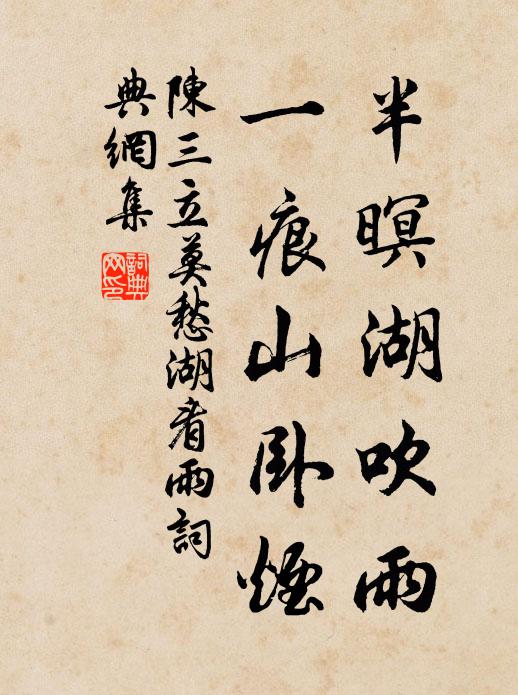 半暝湖吹雨
一痕山卧煙
陳三立莫愁湖看雨詞
典網集
詞典網印